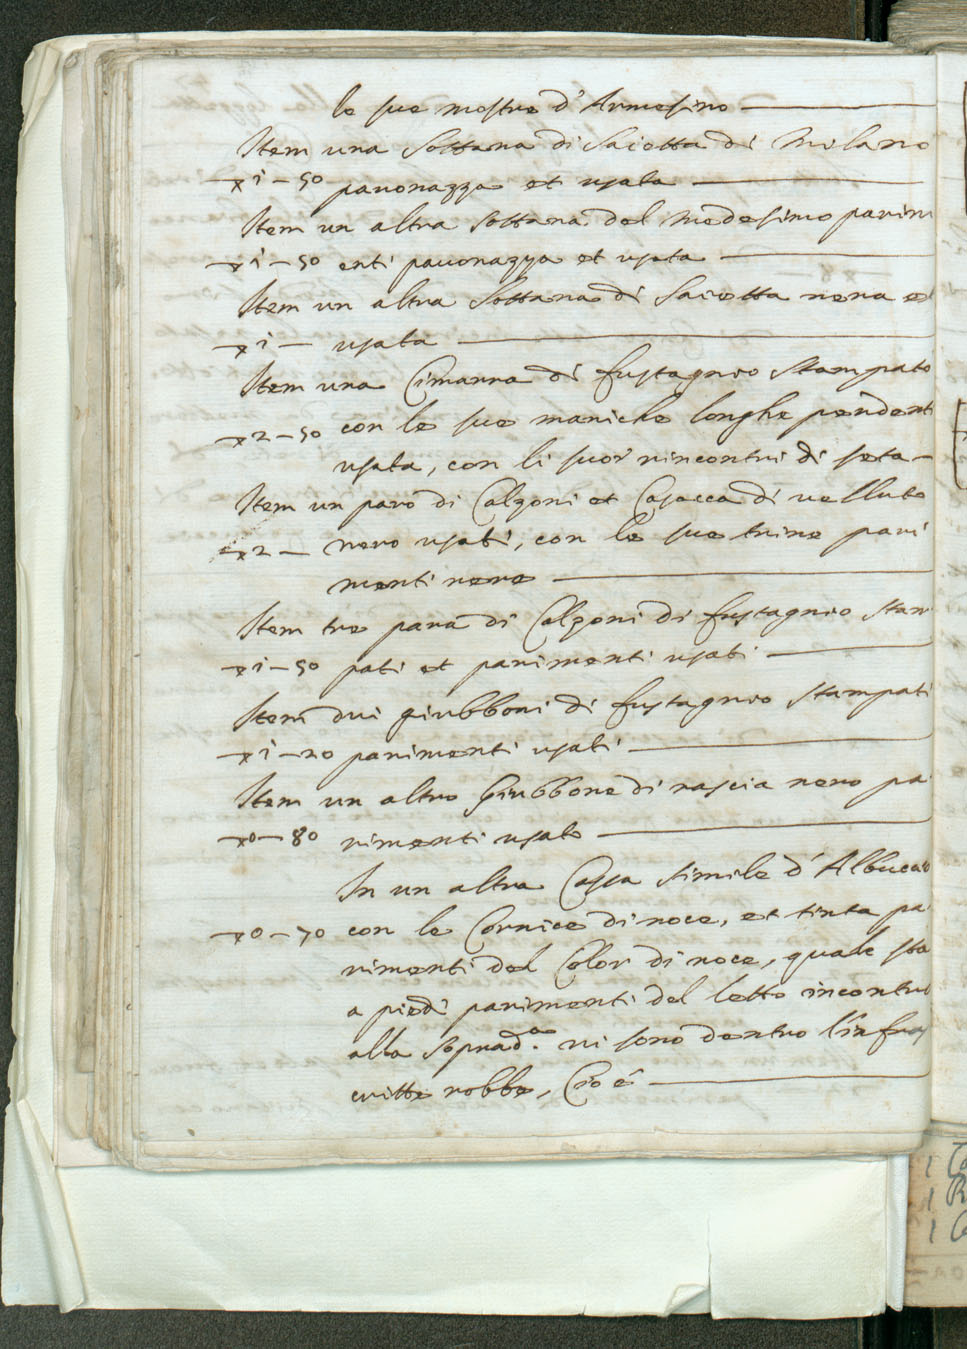 le sue mostre d'Armesino
Item una Sottana di Saietta di Milano
1 – 50 pavonazza et usata
Item un altra sottana del medesimo parim
1 – 50 enti pauonazza et usata
Item un altra Sottana di Saietta nera et
1 – usata
Item una Cimarra di fustagnio stampato
2 – 50 con le sue maniche longhe pendenti
usata, con li suoi rincontri di seta –
Item un paro di Calzoni et Casacca di velluto
2 – nero usati, con le sue trine pari
menti nere
Item tre para di Calzoni di fustagnio stam
1 – 50 pati et parimenti usati
Item dui giubboni di fustagnio stampati
1 – 20 parimenti usati
Item un altro Giubbone di rascia nero pa
0 – 80 rimenti usato
In un altra Cassa simile d'Albuccio
0 – 70 con le Cornice di noce, et tinta pa
rimenti del Color di noce, quale sta
a piedi parimenti del letto incontro
alla soprad.a vi sono dentro l'infras
critte robbe, Cioè